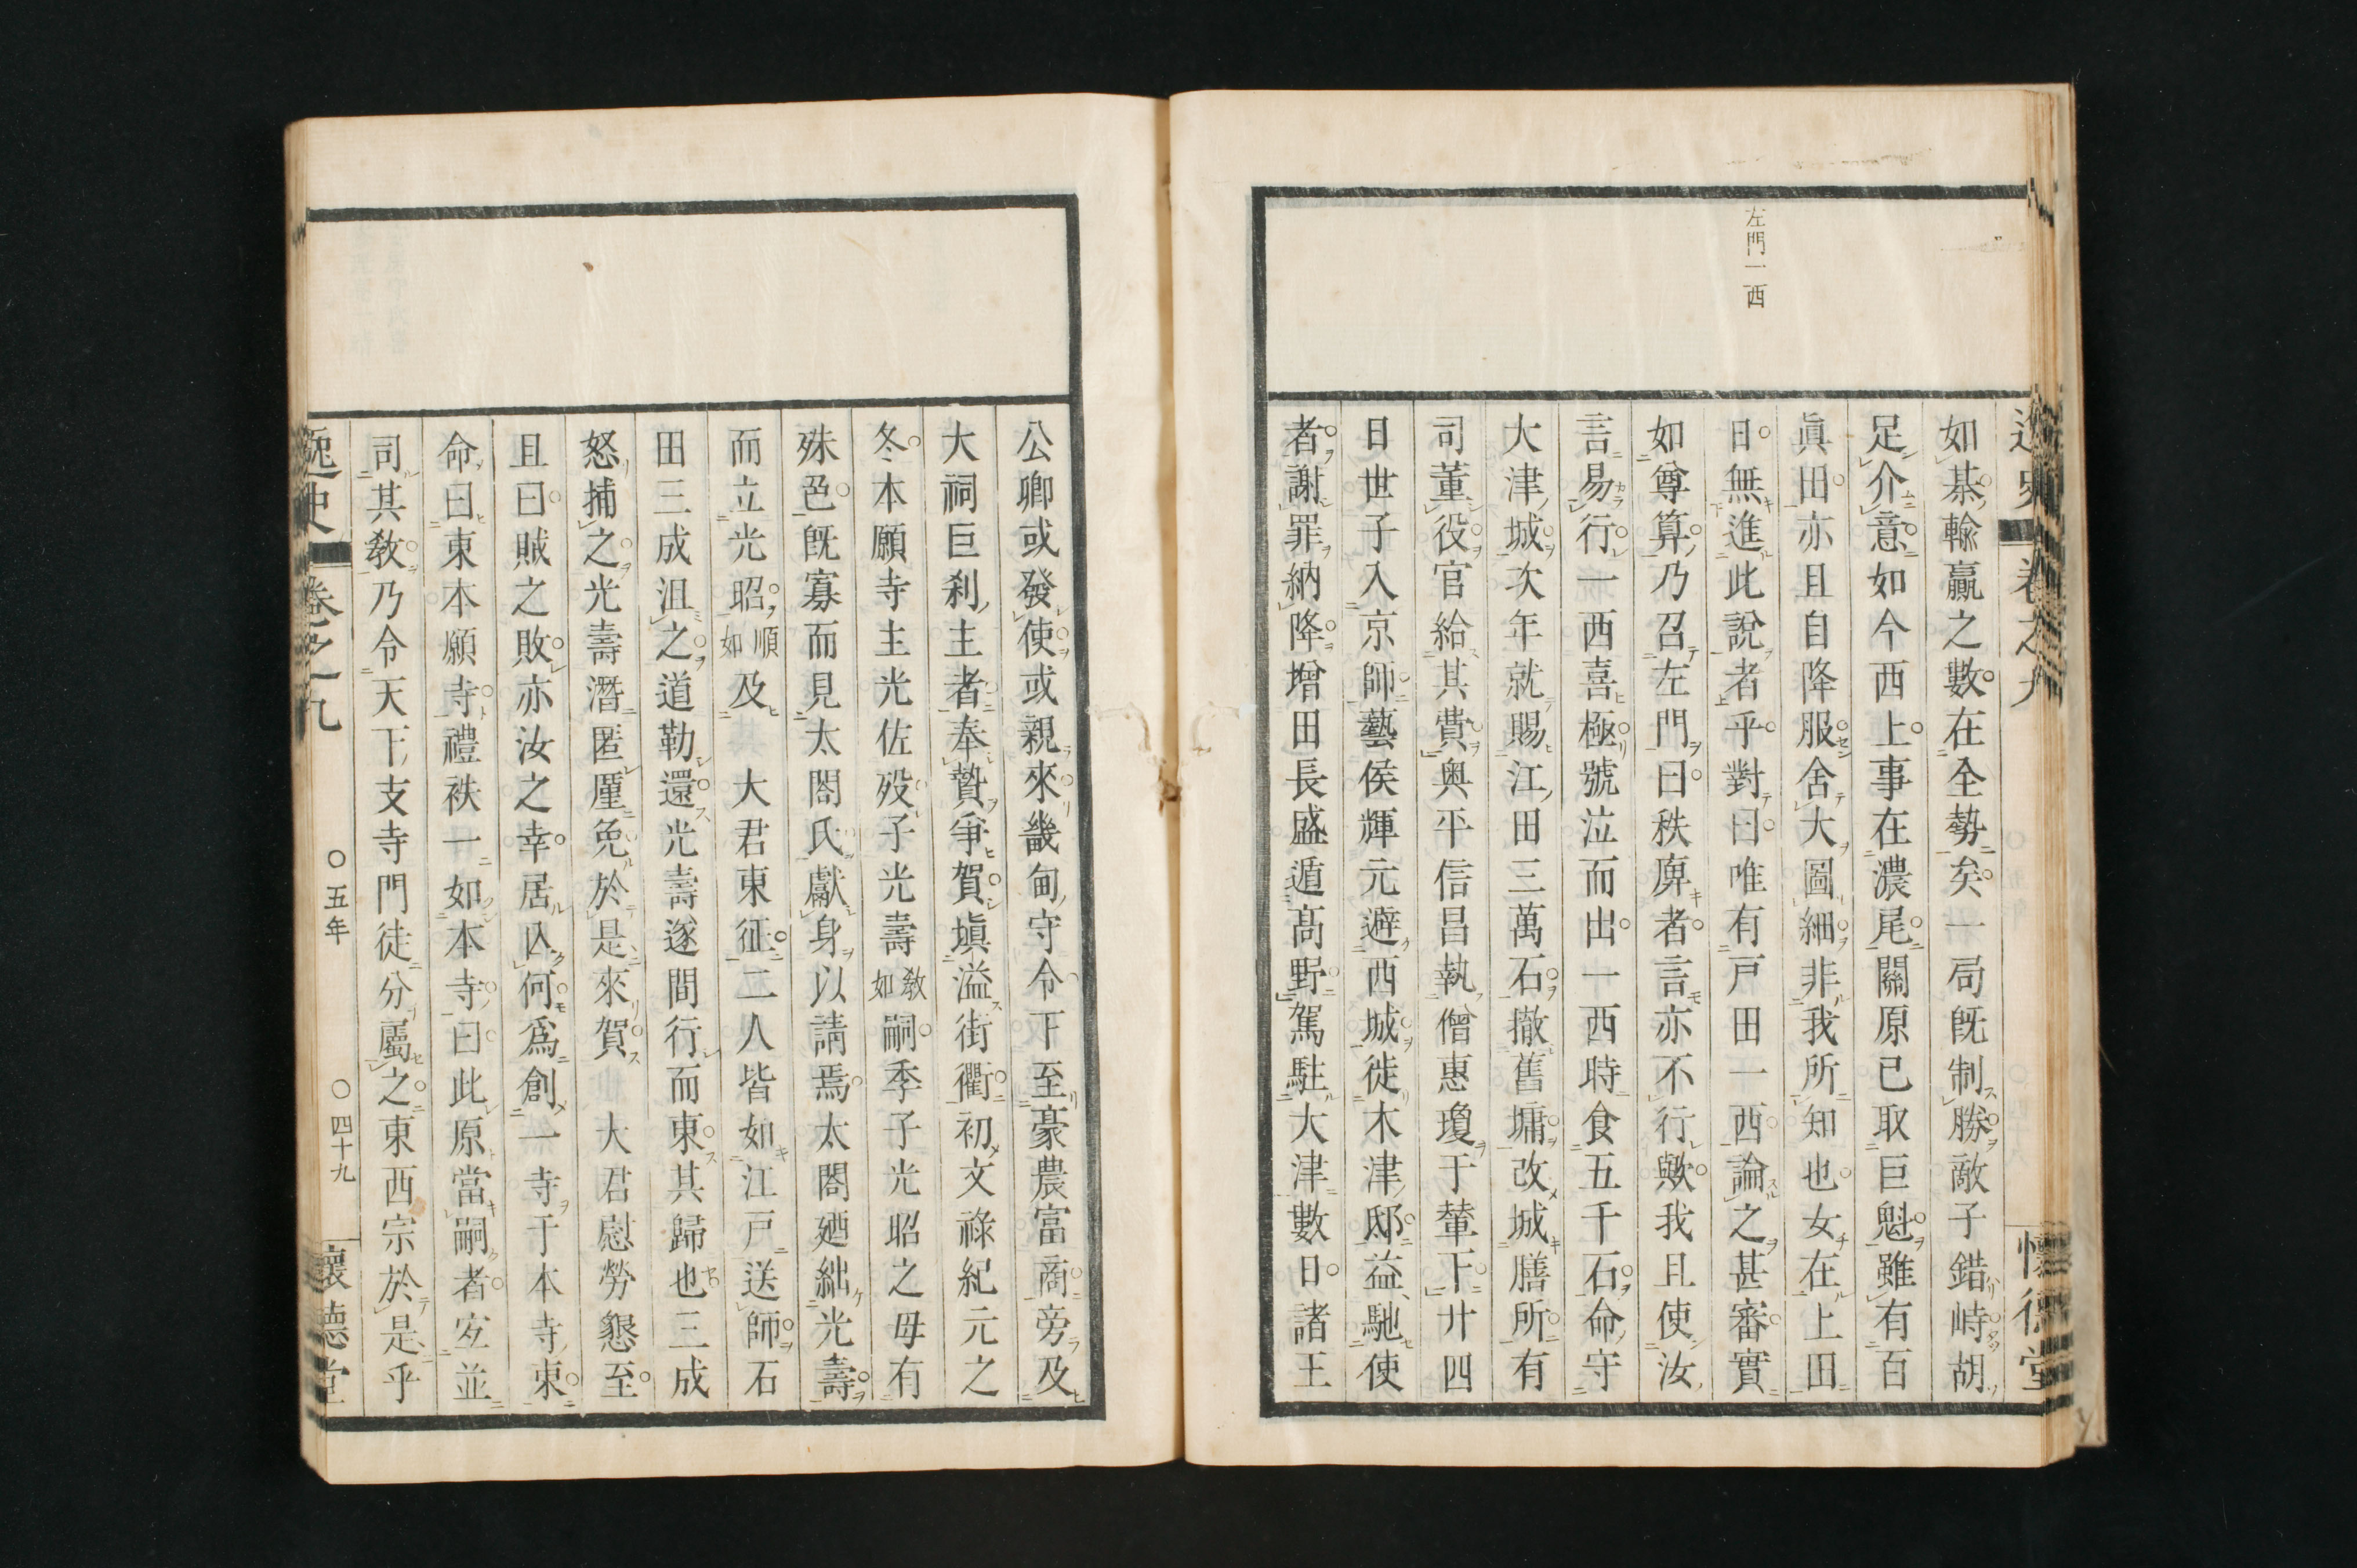 左門一西
逸史 卷之九 懷德堂
如棊輸贏之數在全勢矣一局旣制勝敵子錯峙胡
足介意如今西上事在濃尾關原已取巨魁雖有百
眞田亦且自降服舍大圖細非我所知也女在上田
日無進此說者乎對曰唯有戸田一西論之甚審實
如尊算乃召左門曰秩庳者言亦不行歟我且使汝
言易行一西喜極號泣而出一西時食五千石命守
大津城次年就賜江田三萬石撤舊墉改城膳所有
司董役官給其費奥平信昌執僧惠瓊于輦下廿四
日世子入京師藝侯輝元避西城徙木津邸益馳使
者謝罪納降增田長盛遁髙野駕駐大津數日諸王
公卿或發使或親來畿甸守令下至豪農富商旁及
大祠巨刹主者奉贄爭賀塡溢街衢初文祿紀元之
冬本願寺主光佐歿子光壽敎如嗣季子光昭之母有
殊色旣寡而見太閤氏獻身以請焉太閤廼絀光壽
而立光昭順如及 大君東征二人皆如江戸送師石
田三成沮之道勒還光壽遂間行而東其歸也三成
怒捕之光壽潛匿厪免於是來賀 大君慰勞懇至
且曰賊之敗亦汝之幸居囚何爲創一寺于本寺東
命曰東本願寺禮秩一如本寺曰此原當嗣者宐並
司其敎乃令天下支寺門徒分屬之東西宗於是乎
逸史 卷之九 〇五年 〇四十九 懷德堂